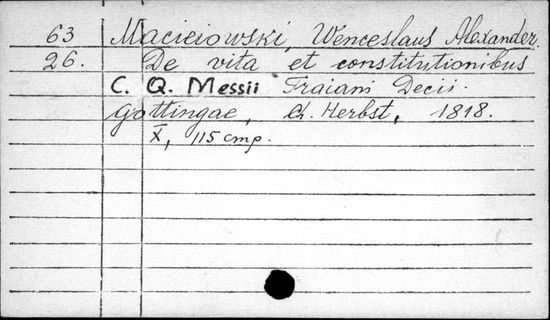 63 Macieiowski, Wenceslaus Alexander.
26. De vita et constitutionibus
C. Q. Messii Traiani Decii.
Gottingae, Ch. Herbst, 1818.
X, 115 стр.